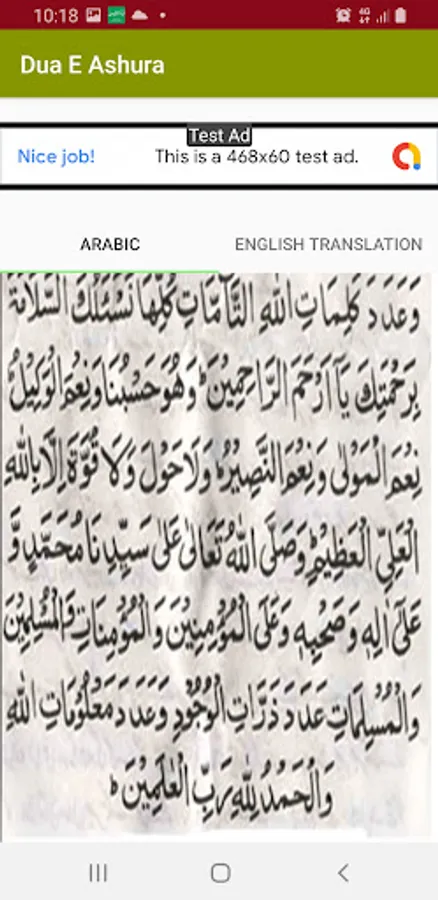 10:18
4G
Dua E Ashura
Test Ad
Nice job! This is a 468x60 test ad.
ARABIC ENGLISH TRANSLATION
وَعَدَدَ كَلِمَاتِ اللهِ التَّآمَّاتِ كُلِّهَا نَسْئَلُكَ السَّلَامَةَ
بِرَحْمَتِكَ يَآ اَرْحَمَ الرَّاحِمِيْنَ ؕ وَهُوَ حَسْبُنَا وَنِعْمَ الْوَكِيْلُ
نِعْمَ الْمَوْلٰى وَنِعْمَ النَّصِيْرُ ؕ وَلَا حَوْلَ وَلَا قُوَّةَ اِلَّا بِاللهِ
الْعَلِيِّ الْعَظِيْمِ ؕ وَصَلَّى اللهُ تَعَالٰى عَلٰى سَيِّدِنَا مُحَمَّدٍ وَّ
عَلٰى اٰلِهٖ وَصَحْبِهٖ وَعَلَى الْمُؤْمِنِيْنَ وَالْمُؤْمِنَاتِ وَالْمُسْلِمِيْنَ
وَالْمُسْلِمَاتِ عَدَدَ ذَرَّاتِ الْوُجُوْدِ وَعَدَدَ مَعْلُوْمَاتِ اللهِ
وَالْحَمْدُ لِلّٰهِ رَبِّ الْعٰلَمِيْنَ ؕ